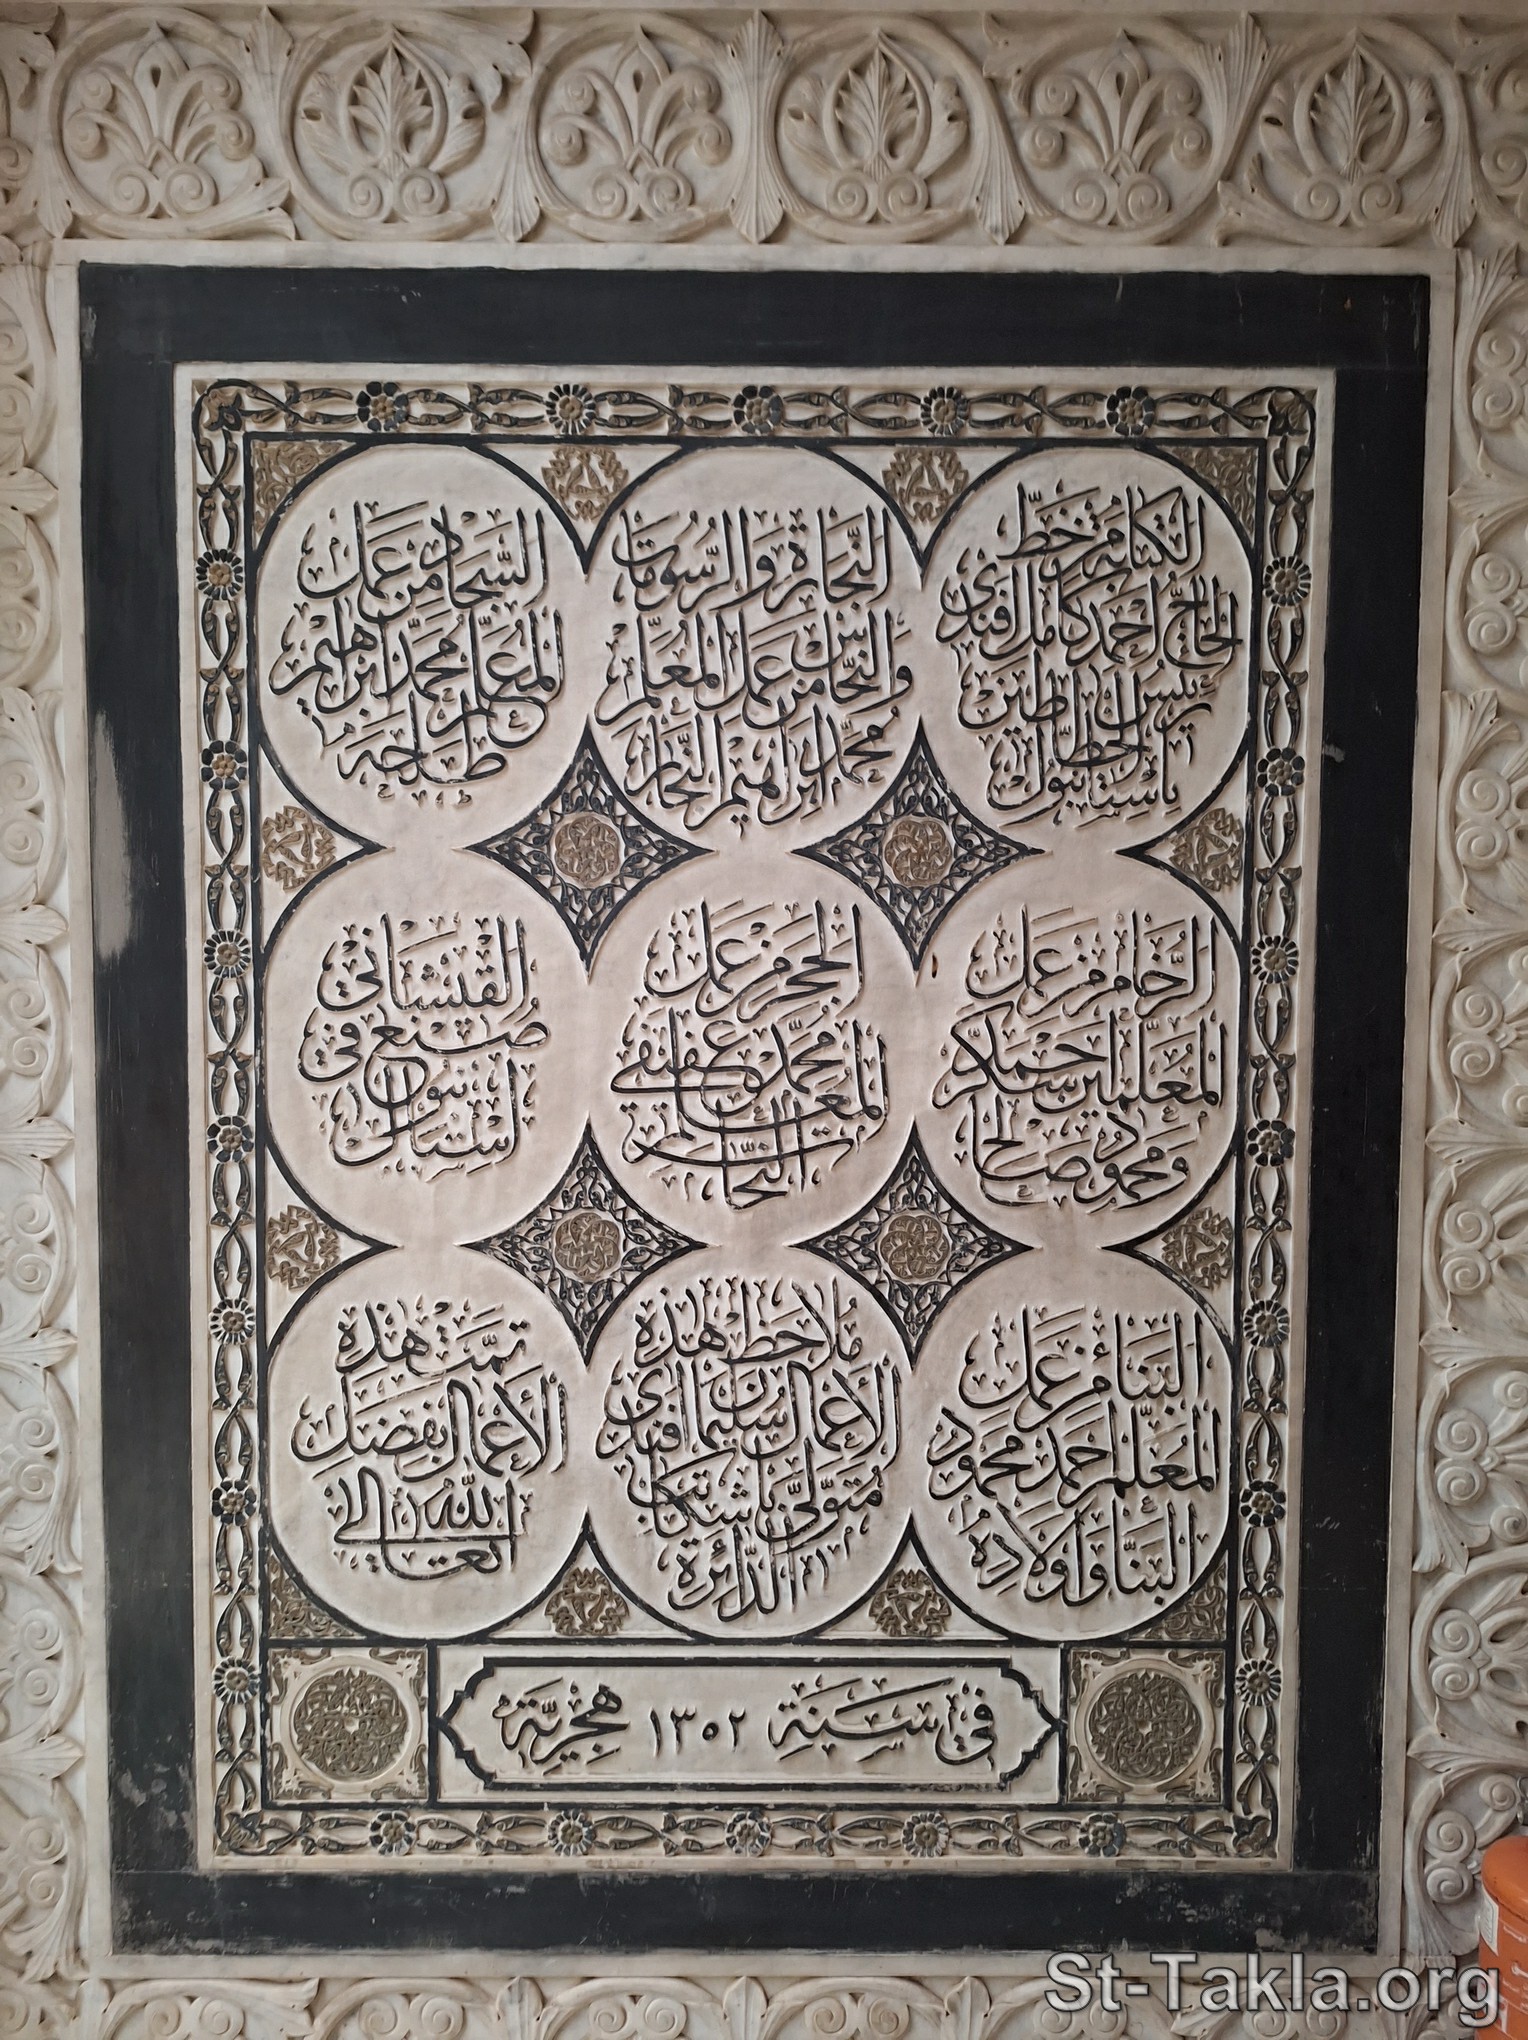 الكتابة خطّ
الحاجّ احمد كامل افندى
رئيس الخطاطين
باستانبول
النّجارة والرّسومات
والنّحاس من عمل المعلّم
محمّد ابراهيم النّجار
السّجاد من عمل
المعلّم محمّد ابراهيم
طلحه
الرّخام من عمل
المعلّمين احمد سكر
ومحمود صالح
الحجر من عمل
المعلّم محمّد عفيفى
النّحات
القيشانى
صنع فى
استنبول
البناء من عمل
المعلّم احمد محمود
البنّا واولاده
ملاحظ هذه
الأعمال سليمان افندى
متولّى باشكاتب
الدّائرة
تمّت هذه
الأعمال بفضل
الله تعالى
في سنة ١٣٥٢ هجريّة
St-Takla.org